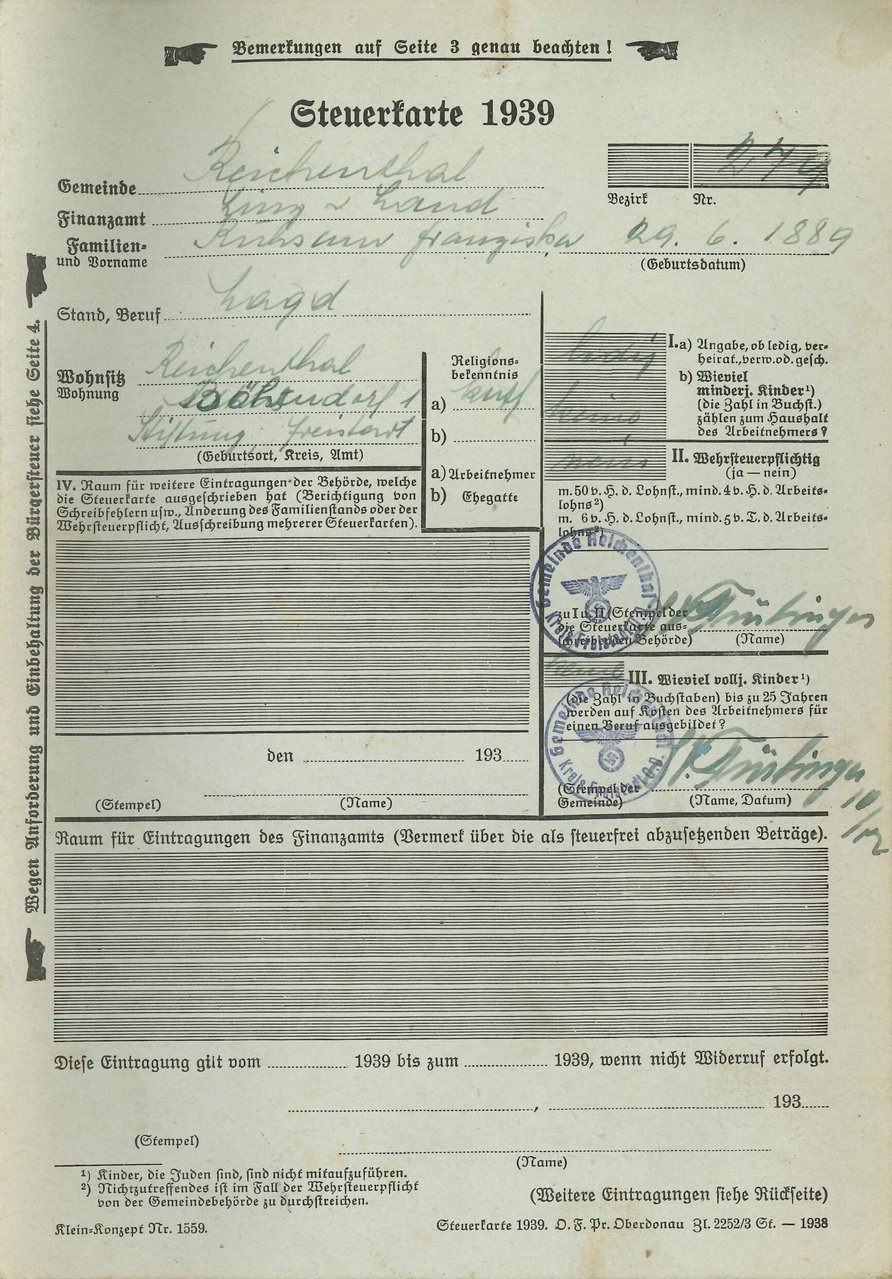 Bemerkungen auf Seite 3 genau beachten!
Steuerkarte 1939
Gemeinde Reichenthal
279
Bezirk Nr.
Finanzamt Linz Land
Familien-
und Vorname Franziska 29. 6. 1889
(Geburtsdatum)
Stand, Beruf
Wohnsitz Reichenthal
Wohnung Böhmdorf 1
Stiftung, Freistadt
(Geburtsort, Kreis, Amt)
Religions-
bekenntnis
a) kath
b)
a) Arbeitnehmer
b) Ehegatte
ledig
I. a) Angabe, ob ledig, ver-
heirat., verw. od. gesch.
keine
b) Wieviel
minderj. Kinder¹)
(die Zahl in Buchst.)
zählen zum Haushalt
des Arbeitnehmers?
nein
II. Wehrsteuerpflichtig
(ja — nein)
m. 50 v. H. d. Lohnst., mind. 4 v. H. d. Arbeits-
lohns²)
m. 6 v. H. d. Lohnst., mind. 5 v. T. d. Arbeits-
lohns²)
Gemeinde Reichenthal
Kreis Freistadt O.D.
zu I u. II (Stempel der
die Steuerkarte aus-
schreibenden Behörde) (Name)
III. Wieviel vollj. Kinder¹)
(die Zahl in Buchstaben) bis zu 25 Jahren
werden auf Kosten des Arbeitnehmers für
einen Beruf ausgebildet?
Gemeinde Reichenthal
Kreis Freistadt O.D.
(Stempel der
Gemeinde) (Name, Datum)
10/12
IV. Raum für weitere Eintragungen der Behörde, welche
die Steuerkarte ausgeschrieben hat (Berichtigung von
Schreibfehlern usw., Änderung des Familienstands oder der
Wehrsteuerpflicht, Ausschreibung mehrerer Steuerkarten).
den 193
(Stempel) (Name)
Wegen Anforderung und Einbehaltung der Bürgersteuer siehe Seite 4.
Raum für Eintragungen des Finanzamts (Vermerk über die als steuerfrei abzusetzenden Beträge).
Diese Eintragung gilt vom 1939 bis zum 1939, wenn nicht Widerruf erfolgt.
, 193
(Stempel)
(Name)
¹) Kinder, die Juden sind, sind nicht mitaufzuführen.
²) Nichtzutreffendes ist im Fall der Wehrsteuerpflicht
von der Gemeindebehörde zu durchstreichen.
(Weitere Eintragungen siehe Rückseite)
Klein-Konzept Nr. 1559.
Steuerkarte 1939. O. F. Pr. Oberdonau Zl. 2252/3 St. — 1938